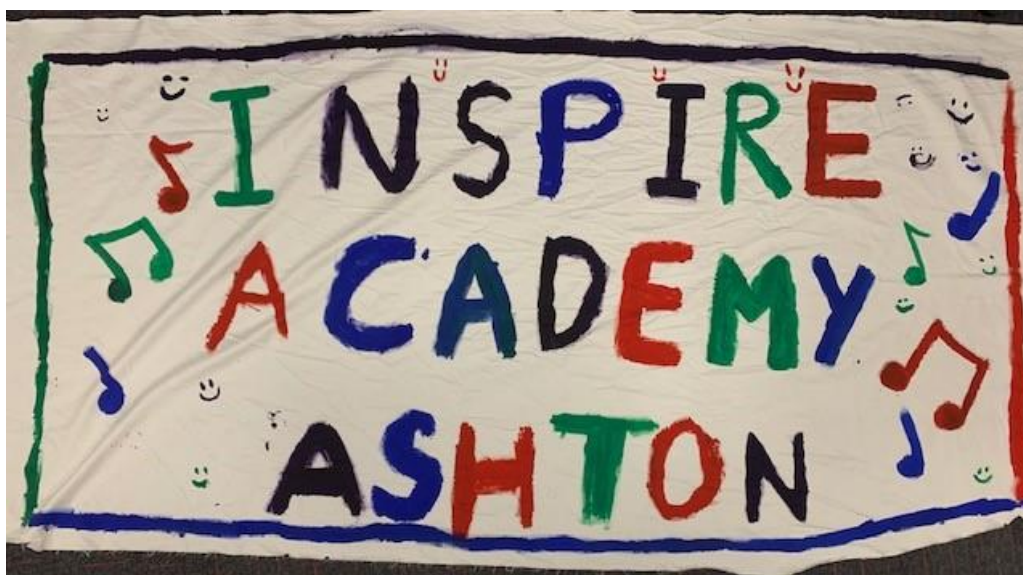 INSPIRE
ACADEMY
ASHTON